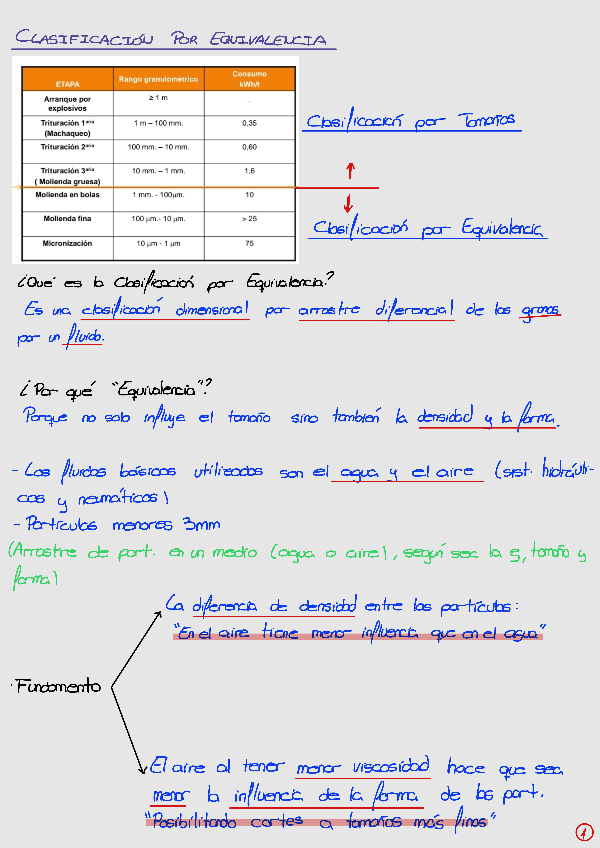 CLASIFICACIÓN POR EQUIVALENCIA
ETAPA Rango granulométrico Consumo kWh/t
Arranque por explosivos ≥ 1 m ...
Trituración 1aria (Machaqueo) 1 m – 100 mm. 0,35
Trituración 2aria 100 mm. – 10 mm. 0,60
Trituración 3aria ( Molienda gruesa) 10 mm. – 1 mm. 1,6
Molienda en bolas 1 mm. - 100μm. 10
Molienda fina 100 μm.- 10 μm. > 25
Micronización 10 μm - 1 μm 75
Clasificación por Tamaños
Clasificación por Equivalencia
¿Qué es la Clasificación por Equivalencia?
Es una clasificación dimensional por arrastre diferencial de los granos
por un fluido.
¿Por qué "Equivalencia"?
Porque no solo influye el tamaño sino también la densidad y la forma.
- Los fluidos básicos utilizados son el agua y el aire (sist. hidráuli-
cos y neumáticos)
- Partículas menores 3mm
(Arrastre de part. en un medio (agua o aire), según sea la ρ, tamaño y
forma)
La diferencia de densidad entre las partículas:
"En el aire tiene menor influencia que en el agua"
· Fundamento
El aire al tener menor viscosidad hace que sea
menor la influencia de la forma de las part.
"Posibilitando cortes a tamaños más finos"
1